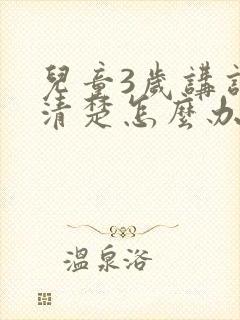 兒童3歲講
清楚怎麼办
溫泉浴